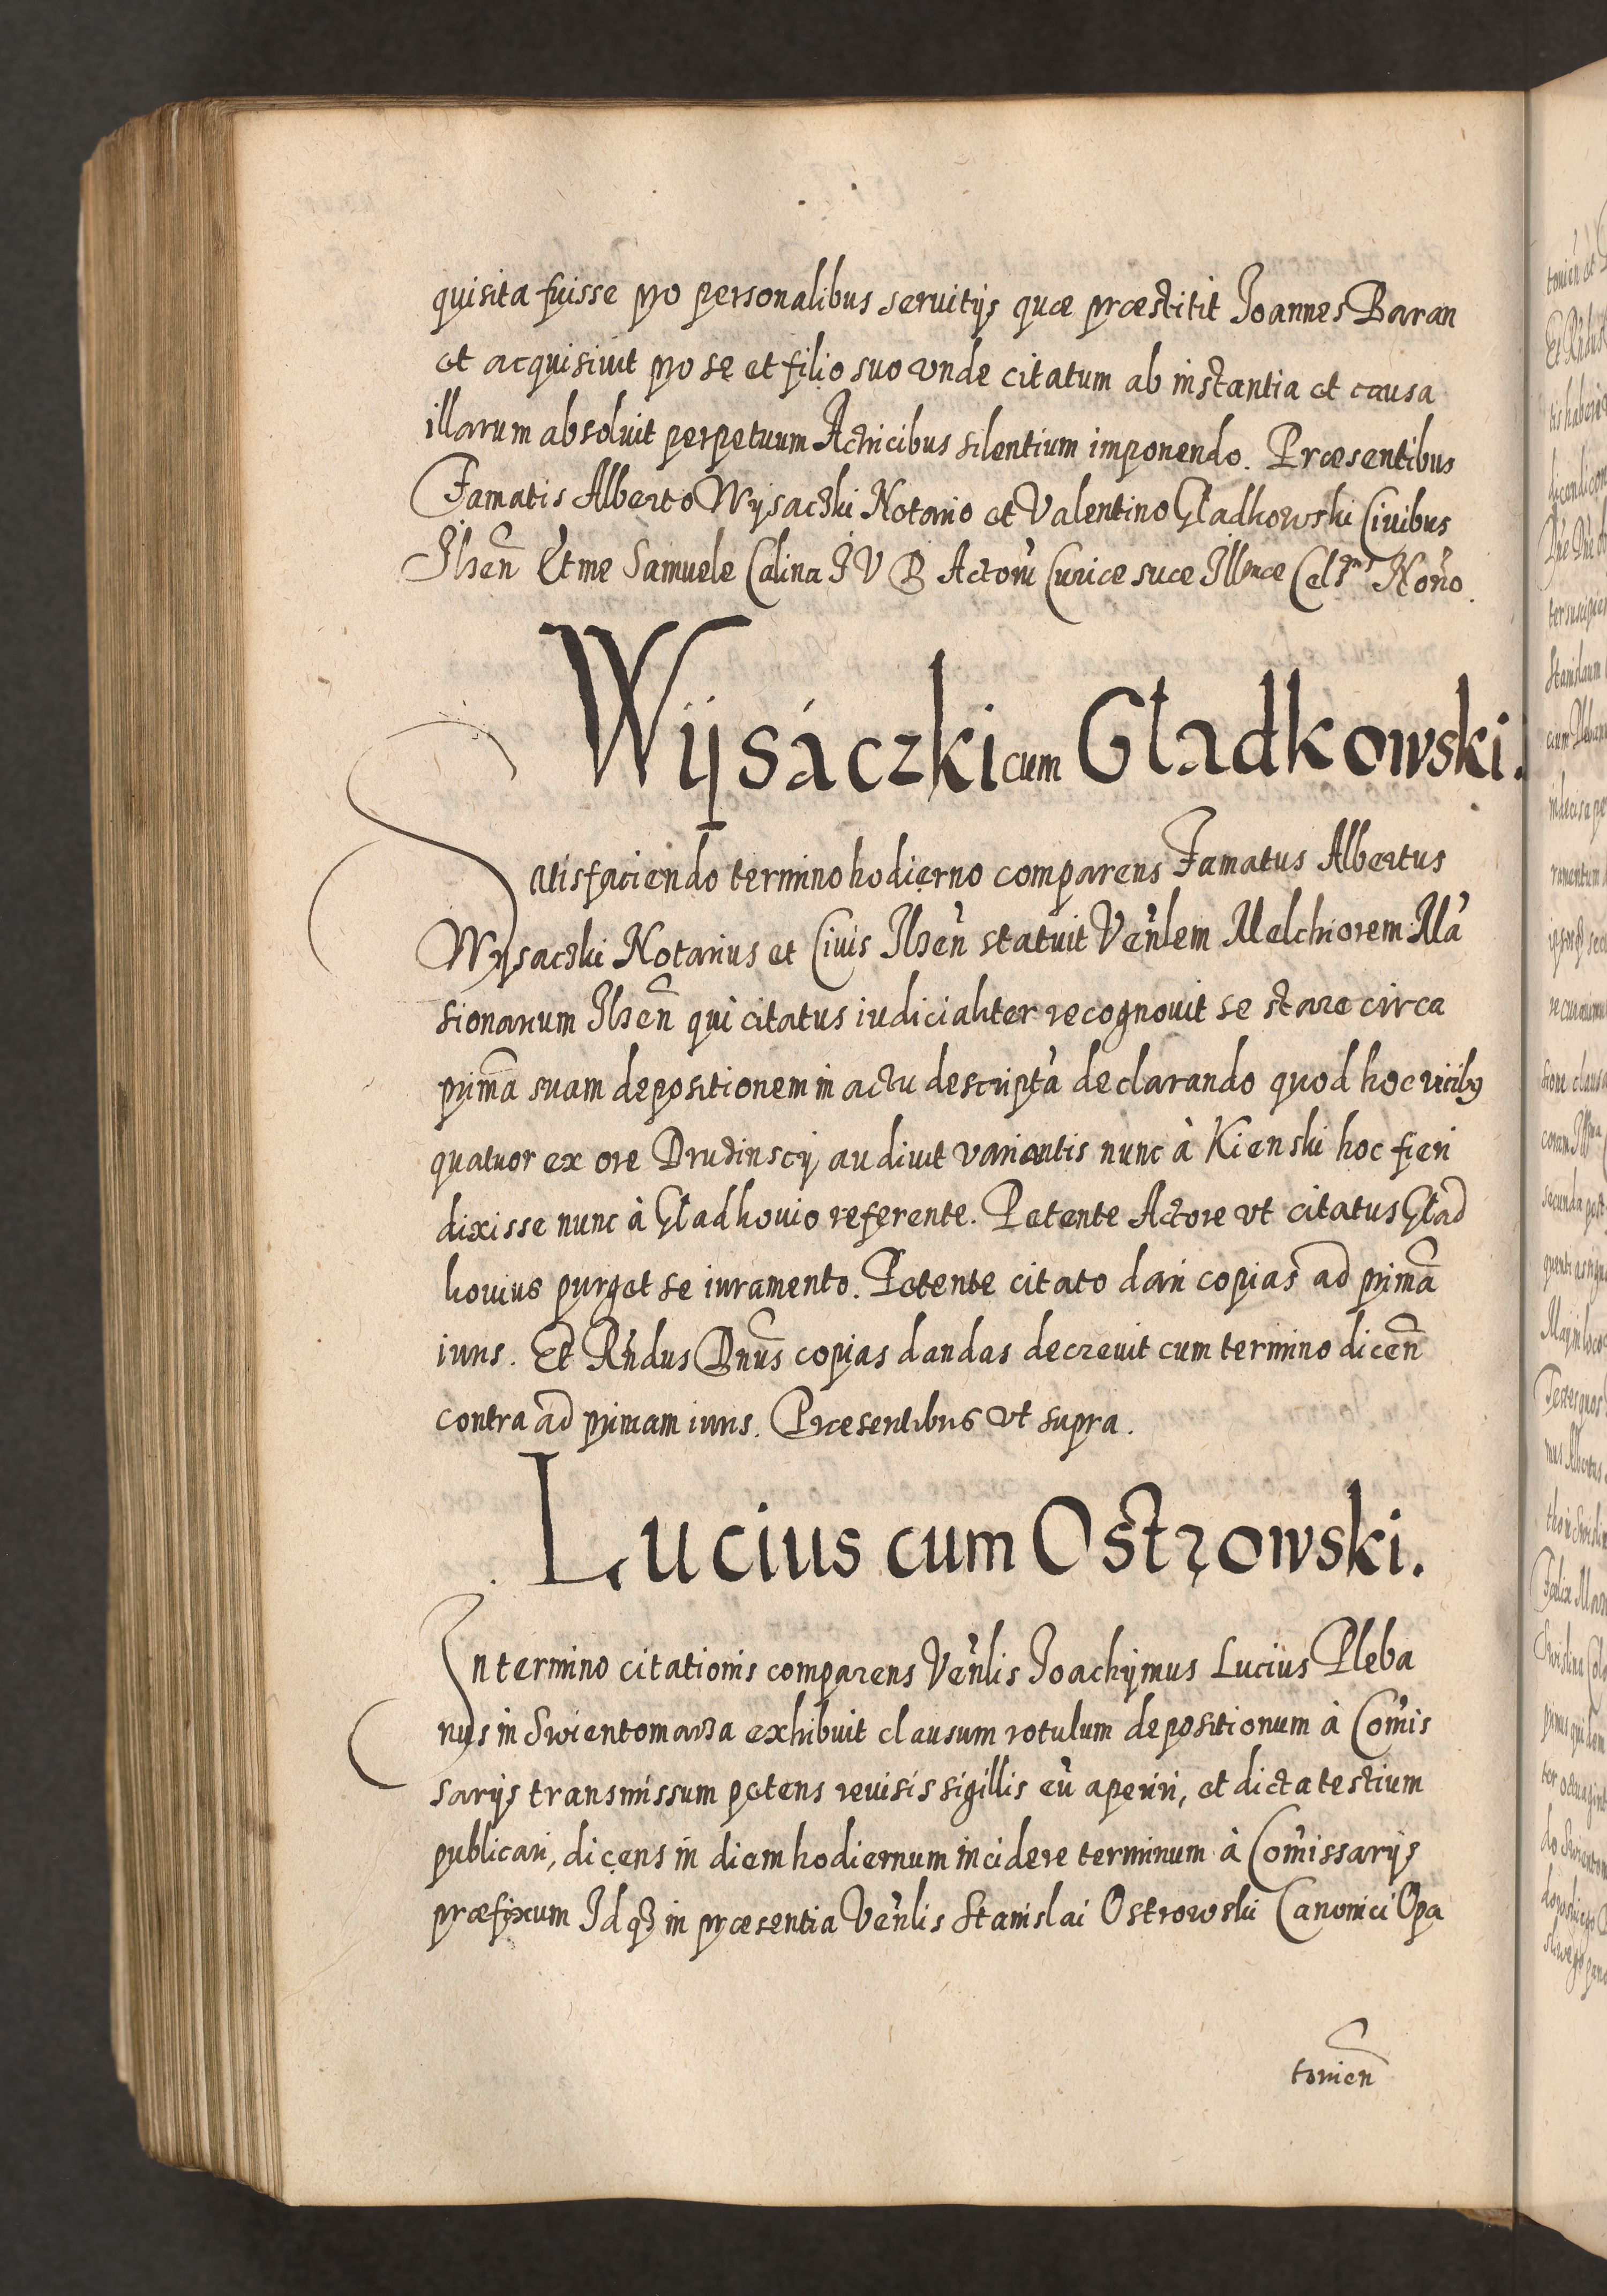 quisita fuisse pro personalibus seruitijs quæ præstitit Joannes Baran
et acquisiuit pro se et filio suo vnde citatum ab instantia et causa
illarum absoluit perpetuum Actricibus silentium imponendo. Præsentibus
Famatis Alberto Wysaczki Notario et Valentino Gładkowski Ciuibus
Ilzeñ Et me Samuele Calina I V B Actorũ Curiæ suæ Illmæ Celsnis Noño.
Wÿsáczki cum Gładkowski.
Satisfaciendo termino hodierno comparens Famatus Albertus
Wysaczki Notarius et Ciuis Ilzeñ statuit Veñlem Melchiorem Mã
sionarium Ilzeñ qui citatus iudicialiter recognouit se stare circa
primã suam depositionem in actu descriptã declarando quod hoc vicibus
quatuor ex ore Drudzinscij audiuit variantis nunc à Kienski hoc fieri
dixisse nunc à Gładkouio referente. Petente Actore vt citatus Gład
kouius purget se iuramento. Petente citato dari copias ad primã
iuris. Et Rñdus Dñus copias dandas decreuit cum termino diceñ
contra ad primam iuris. Præsentibus vt supra.
Lucius cum Ostrowski.
In termino citationis comparens Veñlis Joachÿmus Lucius Pleba
nus in Swientomarza exhibuit clausum rotulum depositionum à Com̃is
sarijs transmissum petens reuisis sigillis eũ aperiri, et dicta testium
publicari, dicens in diem hodiernum incidere terminum à Com̃issarijs
præfixum Idq3 in præsentia Veñlis Stanislai Ostrowski Canonici Opa
touieñ